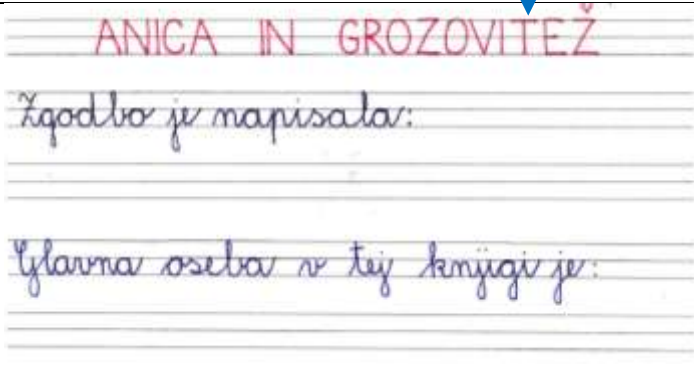 ANICA IN GROZOVITEŽ
Zgodbo je napisala:
Glavna oseba v tej knjigi je: